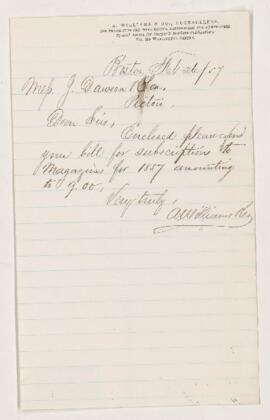 A. WILLIAMS & CO., BOOKSELLERS,
Boston, Feb 26/57
Mess. J. Dawson & Co.
Pictou
Dear Sirs,
Enclosed please find
your bill for subscriptions to
Magazines for 1857 amounting
to 9.00.
Very truly,
A Williams & Co